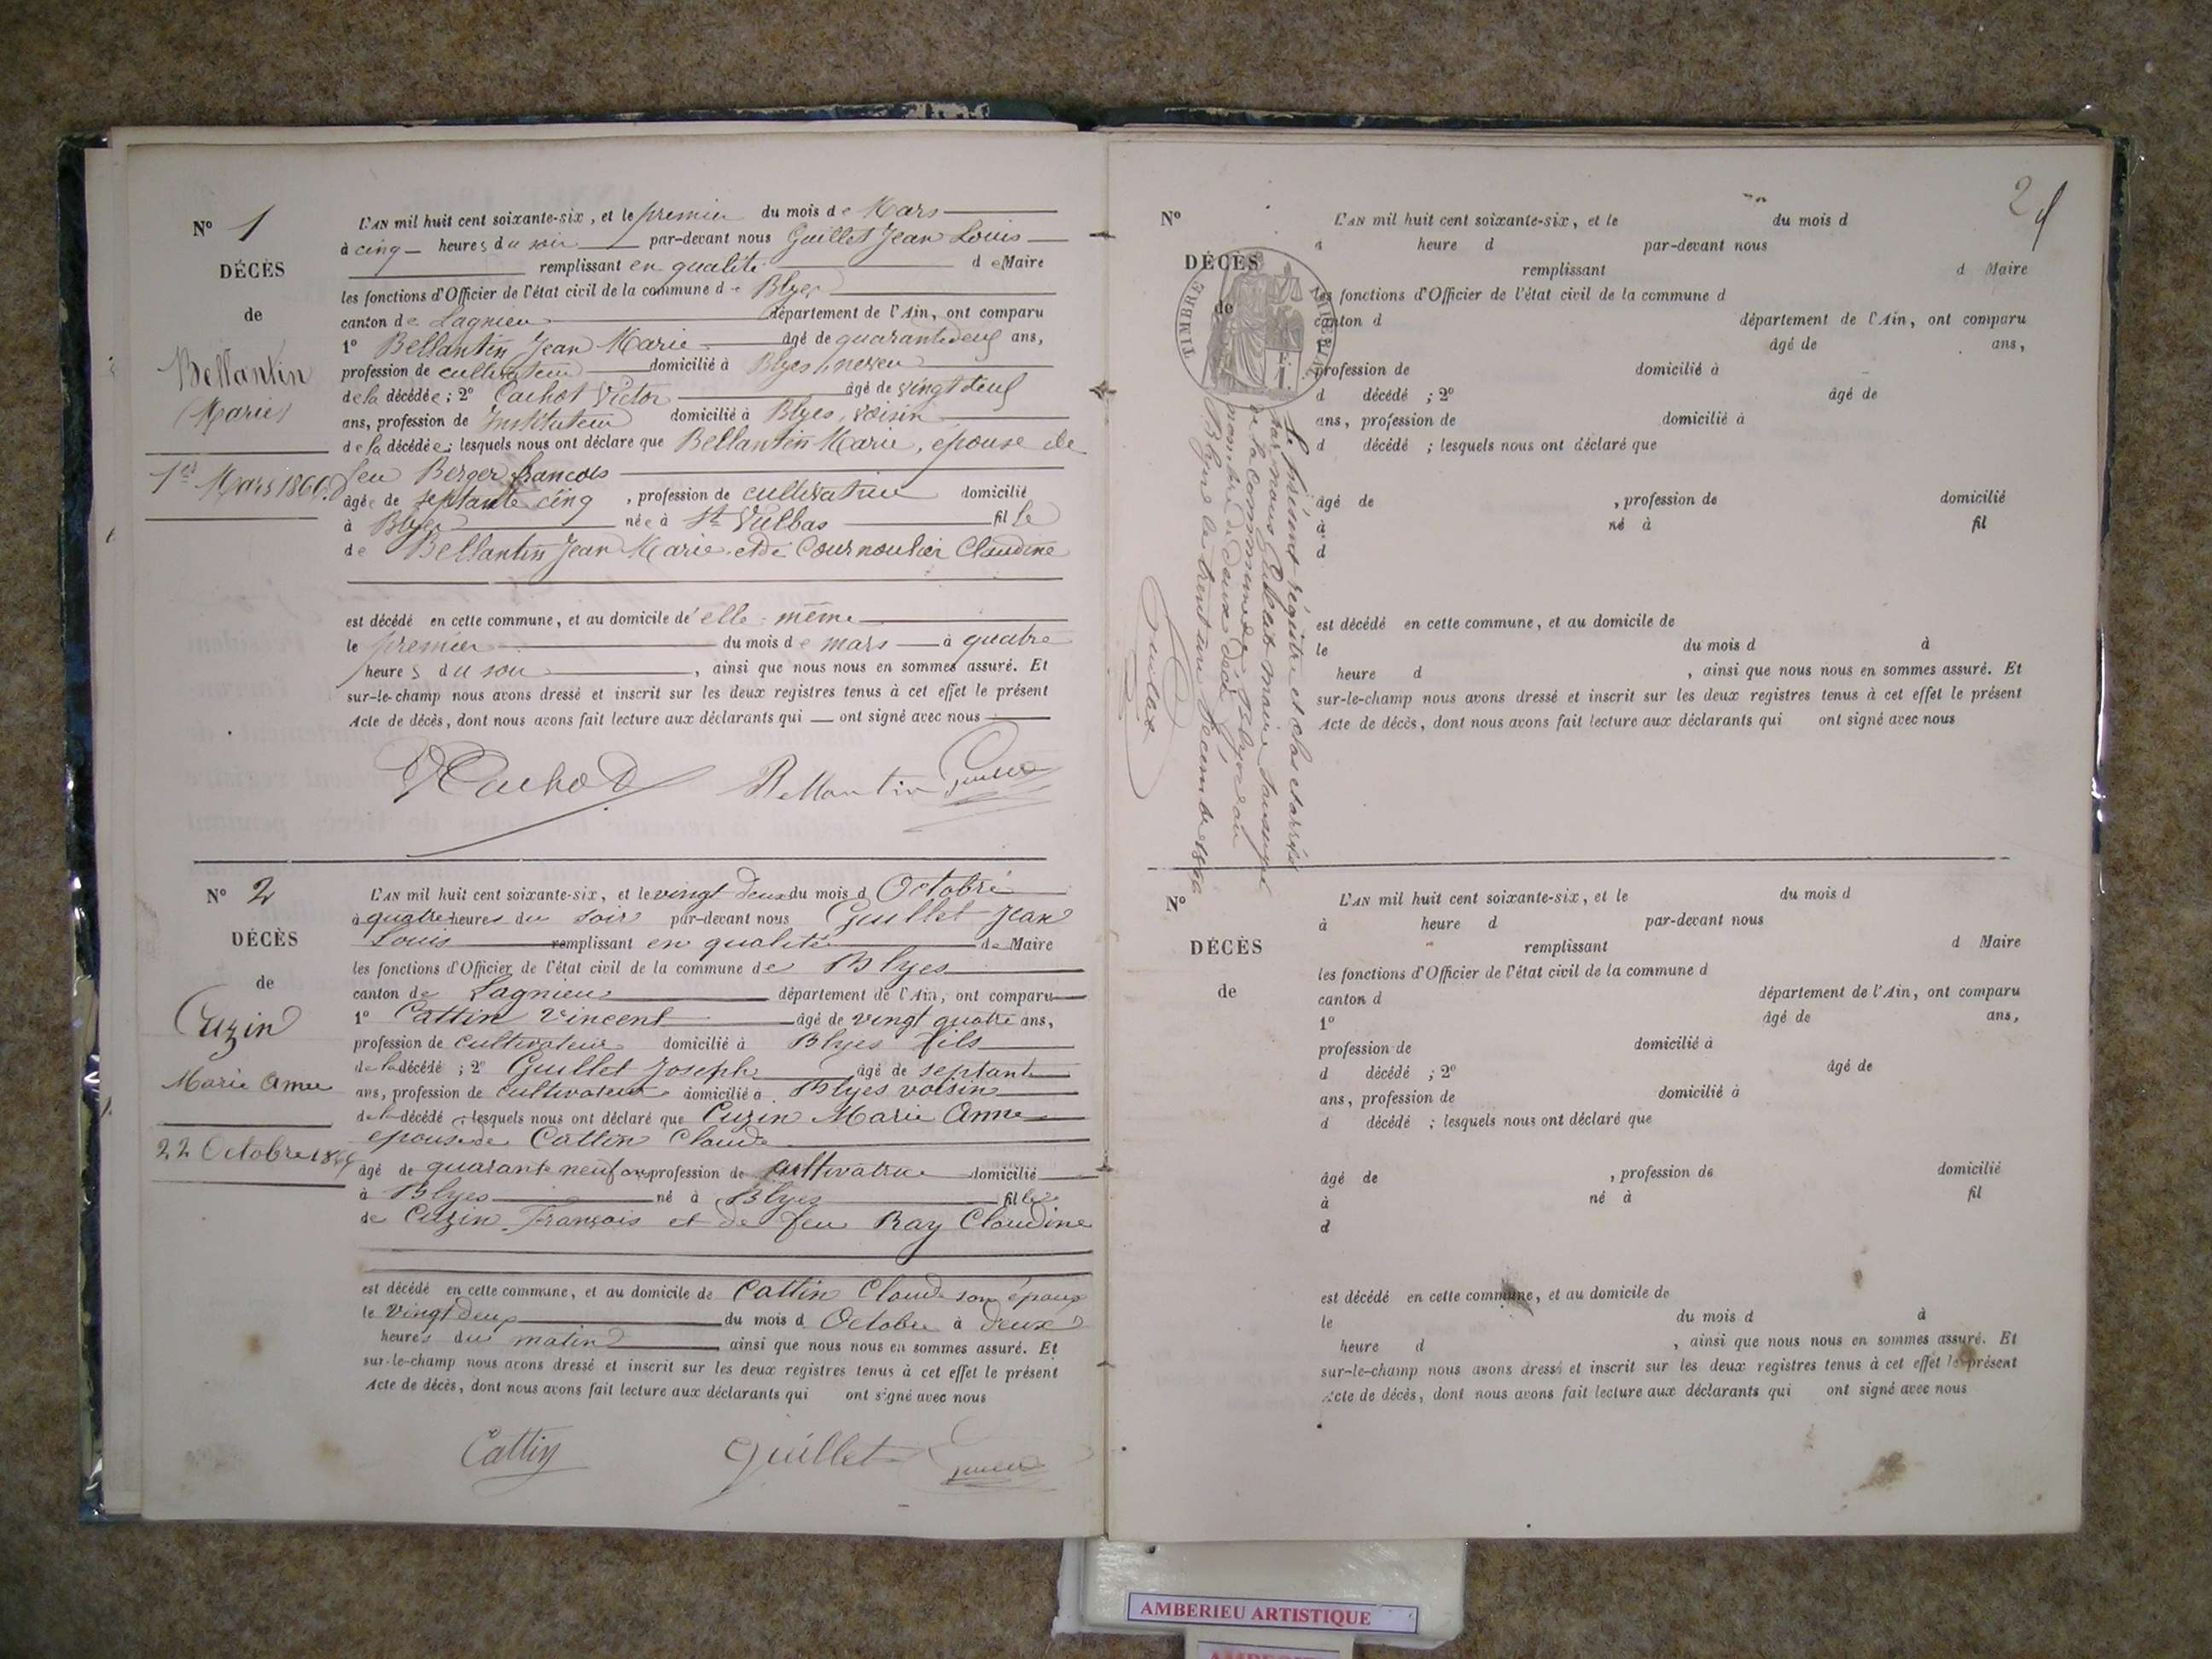 N° 1
DÉCÈS
de
Bellantin
(Marie)
1er Mars 1866.
L'AN mil huit cent soixante-six, et le premier du mois de Mars
à cinq heures du soir par-devant nous Guillet Jean Louis
remplissant en qualité de Maire
les fonctions d'Officier de l'état civil de la commune de Blyes
canton de Lagnieu département de l'Ain, ont comparu
1° Bellantin Jean Marie âgé de quarante deux ans,
profession de cultivateur domicilié à Blyes, neveu
de la décédée ; 2° Cachot Victor âgé de vingt deux
ans, profession de Instituteur domicilié à Blyes, voisin
de la décédée ; lesquels nous ont déclaré que Bellantin Marie, épouse de
feu Berger francois
âgée de septante cinq , profession de cultivatrice domicilié
à Blyes née à St Vulbas fille
de Bellantin Jean Marie et de Cournoulier Claudine
est décédé en cette commune, et au domicile d'elle même
le premier du mois de mars à quatre
heures du soir , ainsi que nous nous en sommes assuré. Et
sur-le-champ nous avons dressé et inscrit sur les deux registres tenus à cet effet le présent
Acte de décès, dont nous avons fait lecture aux déclarants qui ont signé avec nous
VCachod Bellantin Guillet
N° 2
DÉCÈS
de
Cuzin
Marie Anne
22 Octobre 1866
L'AN mil huit cent soixante-six, et le vingt deux du mois d Octobre
à quatre heures du soir par-devant nous Guillet Jean
Louis remplissant en qualité de Maire
les fonctions d'Officier de l'état civil de la commune de Blyes
canton de Lagnieu département de l'Ain, ont comparu
1° Cattin Vincent âgé de vingt quatre ans,
profession de cultivateur domicilié à Blyes fils
de la décédé ; 2° Guillet Joseph âgé de septante
ans, profession de cultivateur domicilié à Blyes voisin
de la décédé ; lesquels nous ont déclaré que Cuzin Marie Anne
epouse de Cattin Claude
âgé de quarante neuf ans profession de cultivatrice domicilié
à Blyes né à Blyes fille
de Cuzin François et de feu Ray Claudine
est décédé en cette commune, et au domicile de Cattin Claude son époux
le vingt deux du mois d Octobre à deux
heures du matin ainsi que nous nous en sommes assuré. Et
sur-le-champ nous avons dressé et inscrit sur les deux registres tenus à cet effet le présent
Acte de décès, dont nous avons fait lecture aux déclarants qui ont signé avec nous
Cattin Guillet Guillet
2
N°
DÉCÈS
de
TIMBRE IMPERIAL
L'AN mil huit cent soixante-six, et le du mois d
à heure d par-devant nous
remplissant d Maire
les fonctions d'Officier de l'état civil de la commune d
canton d département de l'Ain, ont comparu
âgé de ans,
profession de domicilié à
d décédé ; 2° âgé de
ans, profession de domicilié à
d décédé ; lesquels nous ont déclaré que
âgé de , profession de domicilié
à né à fil
d
est décédé en cette commune, et au domicile de
le du mois d à
heure d , ainsi que nous nous en sommes assuré. Et
sur-le-champ nous avons dressé et inscrit sur les deux registres tenus à cet effet le présent
Acte de décès, dont nous avons fait lecture aux déclarants qui ont signé avec nous
Le présent régistre et clos et arrêté
par nous Guillet maire soussigné
de la Commune de Blyes au
nombre de deux décé
Blyes le trent un Décembre 1866
Guillet
N°
DÉCÈS
de
L'AN mil huit cent soixante-six, et le du mois d
à heure d par-devant nous
remplissant d Maire
les fonctions d'Officier de l'état civil de la commune d
canton d département de l'Ain, ont comparu
1° âgé de ans,
profession de domicilié à
d décédé ; 2° âgé de
ans, profession de domicilié à
d décédé ; lesquels nous ont déclaré que
âgé de , profession de domicilié
à né à fil
d
est décédé en cette commune, et au domicile de
le du mois d à
heure d , ainsi que nous nous en sommes assuré. Et
sur-le-champ nous avons dressé et inscrit sur les deux registres tenus à cet effet le présent
Acte de décès, dont nous avons fait lecture aux déclarants qui ont signé avec nous
AMBERIEU ARTISTIQUE